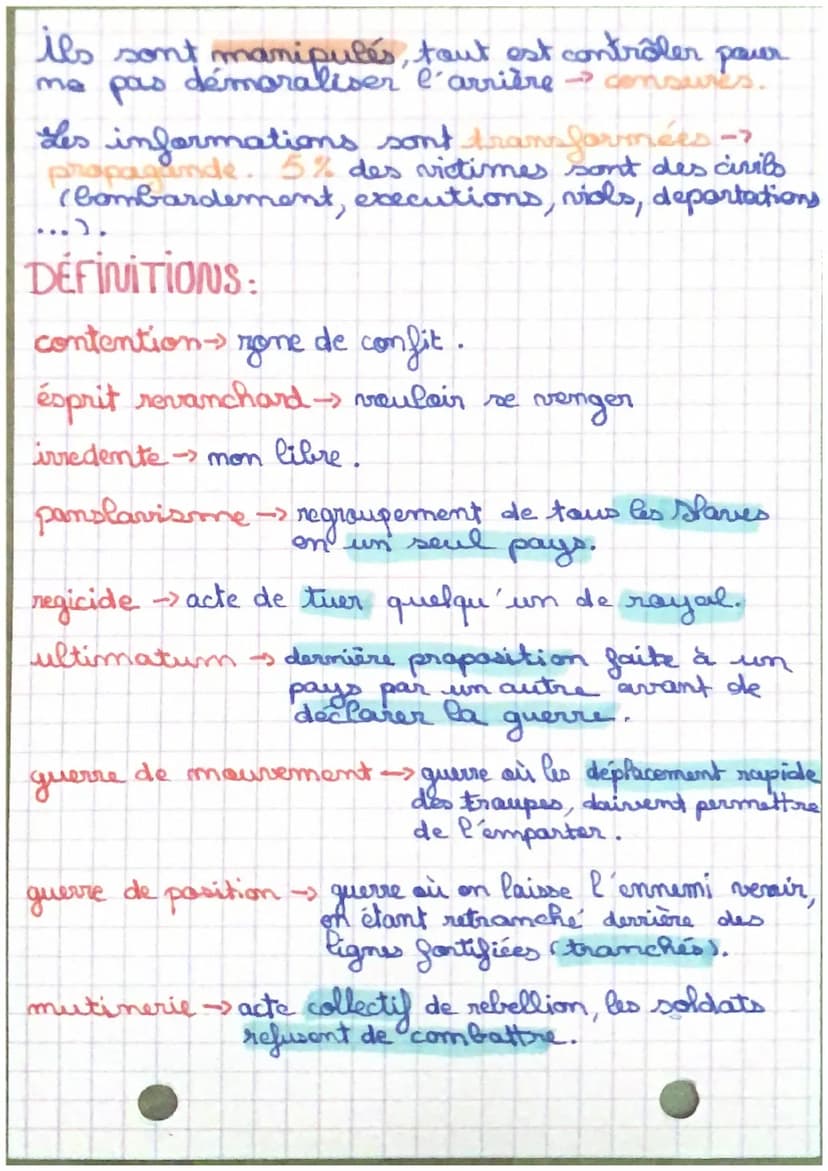 ils sont manipulés, tout est contrôler pour
ne pas démoraliser l'arrière → censures.
Les informations sont transformées →
propagande. 5% des victimes sont des civils
(bombardement, executions, viols, deportations
...).
DÉFINITIONS:
contention → zone de confit.
ésprit revanchard → vouloir se venger
irredente → non libre.
panslavisme → regroupement de tous les Slaves
en un seul pays.
regicide → acte de tuer quelqu'un de royal.
ultimatum → dernière proposition faite à un
pays par un autre avant de
déclarer la guerre.
guerre de mouvement → guerre où les déplacement rapide
des troupes, doivent permettre
de l'emporter.
guerre de position → guerre où on laisse l'ennemi venir,
en étant retranché derrière des
lignes fortifiées (tranchés).
mutinerie → acte collectif de rebellion, les soldats
refusent de combattre.